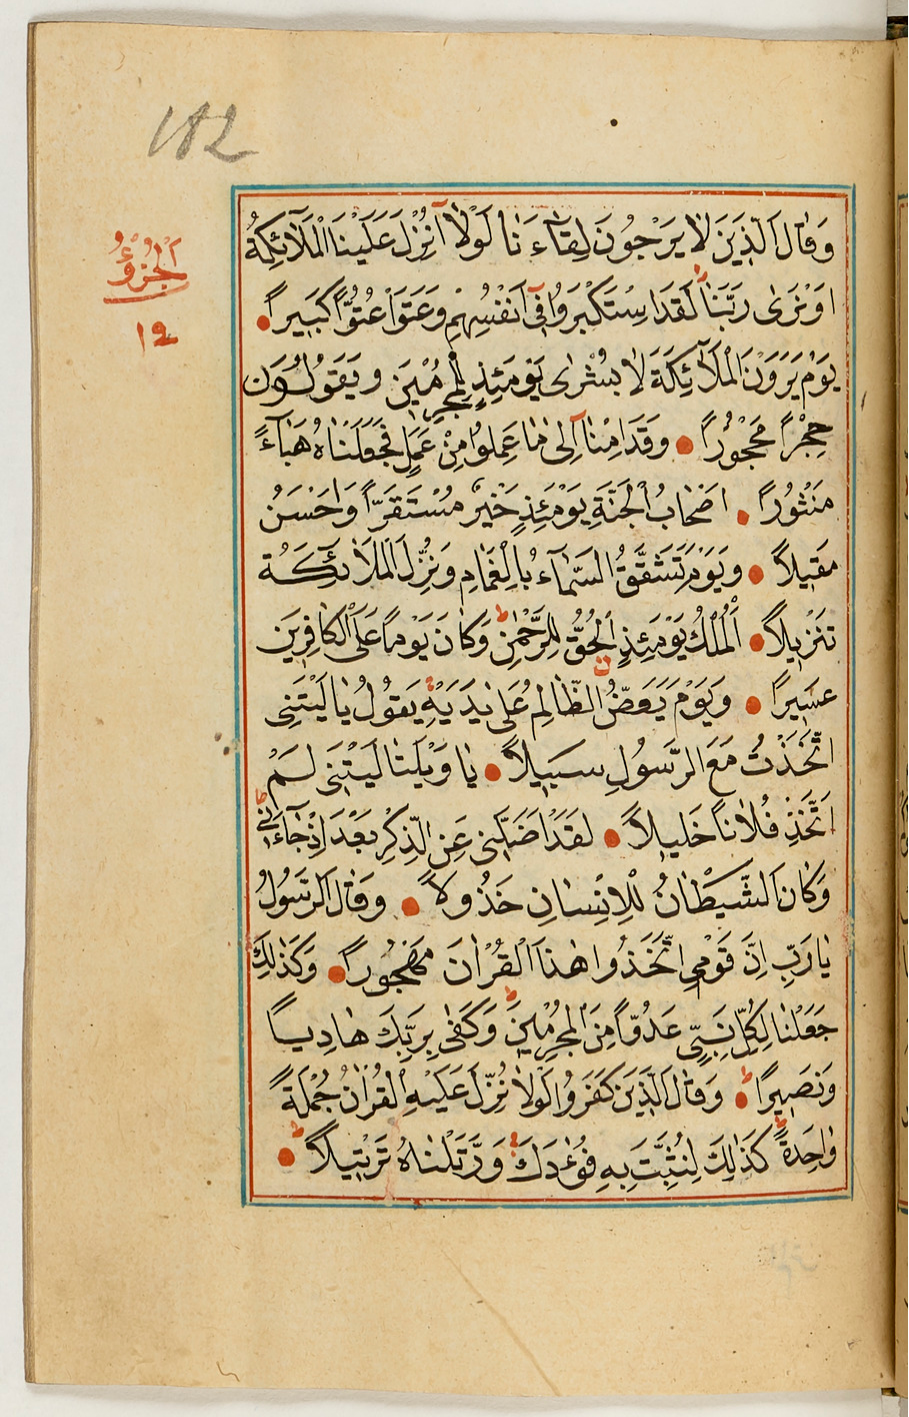 182
الجزؤ
١٩
وَقَالَ الَّذِينَ لَا يَرْجُونَ لِقَآءَنَا لَوْلَآ اُنْزِلَ عَلَيْنَا الْمَلَآئِكَةُ
اَوْ نَرٰى رَبَّنَا لَقَدِ اسْتَكْبَرُوا فِٓى اَنْفُسِهِمْ وَعَتَوْا عُتُوًّا كَبِيرًا
يَوْمَ يَرَوْنَ الْمَلَآئِكَةَ لَا بُشْرٰى يَوْمَئِذٍ لِلْمُجْرِمِينَ وَيَقُولُونَ
حِجْرًا مَحْجُورًا وَقَدِمْنَآ اِلٰى مَا عَمِلُوا مِنْ عَمَلٍ فَجَعَلْنَاهُ هَبَآءً
مَنْثُورًا اَصْحَابُ الْجَنَّةِ يَوْمَئِذٍ خَيْرٌ مُسْتَقَرًّا وَاَحْسَنُ
مَقِيلًا وَيَوْمَ تَشَقَّقُ السَّمَآءُ بِالْغَمَامِ وَنُزِّلَ الْمَلَآئِكَةُ
تَنْزِيلًا اَلْمُلْكُ يَوْمَئِذٍ الْحَقُّ لِلرَّحْمٰنِ وَكَانَ يَوْمًا عَلَى الْكَافِرِينَ
عَسِيرًا وَيَوْمَ يَعَضُّ الظَّالِمُ عَلٰى يَدَيْهِ يَقُولُ يَا لَيْتَنِى
اتَّخَذْتُ مَعَ الرَّسُولِ سَبِيلًا يَا وَيْلَتَا لَيْتَنِى لَمْ
اَتَّخِذْ فُلَانًا خَلِيلًا لَقَدْ اَضَلَّنِى عَنِ الذِّكْرِ بَعْدَ اِذْ جَآءَنِى
وَكَانَ الشَّيْطَانُ لِلْاِنْسَانِ خَذُولًا وَقَالَ الرَّسُولُ
يَا رَبِّ اِنَّ قَوْمِى اتَّخَذُوا هٰذَا الْقُرْاٰنَ مَهْجُورًا وَكَذٰلِكَ
جَعَلْنَا لِكُلِّ نَبِىٍّ عَدُوًّا مِنَ الْمُجْرِمِينَ وَكَفٰى بِرَبِّكَ هَادِيًا
وَنَصِيرًا وَقَالَ الَّذِينَ كَفَرُوا لَوْلَا نُزِّلَ عَلَيْهِ الْقُرْاٰنُ جُمْلَةً
وَاحِدَةً كَذٰلِكَ لِنُثَبِّتَ بِهِ فُؤَٰدَكَ وَرَتَّلْنَاهُ تَرْتِيلًا